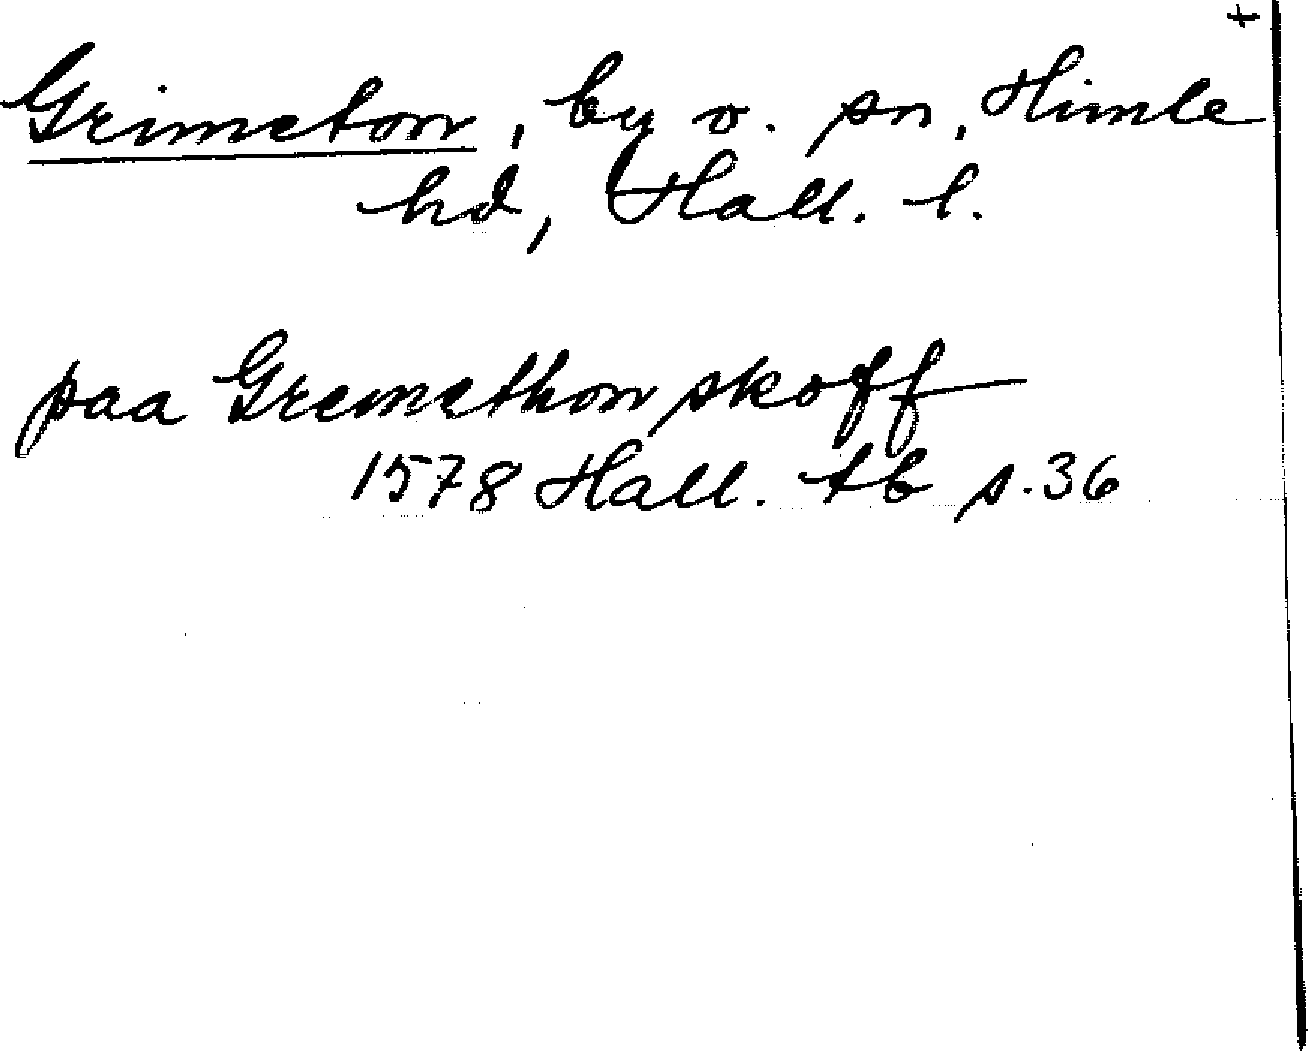 +
Grimeton, by o. sn, Himle
hd, Hall. l.
paa Gremethon skoff
1578 Hall. tb s. 36